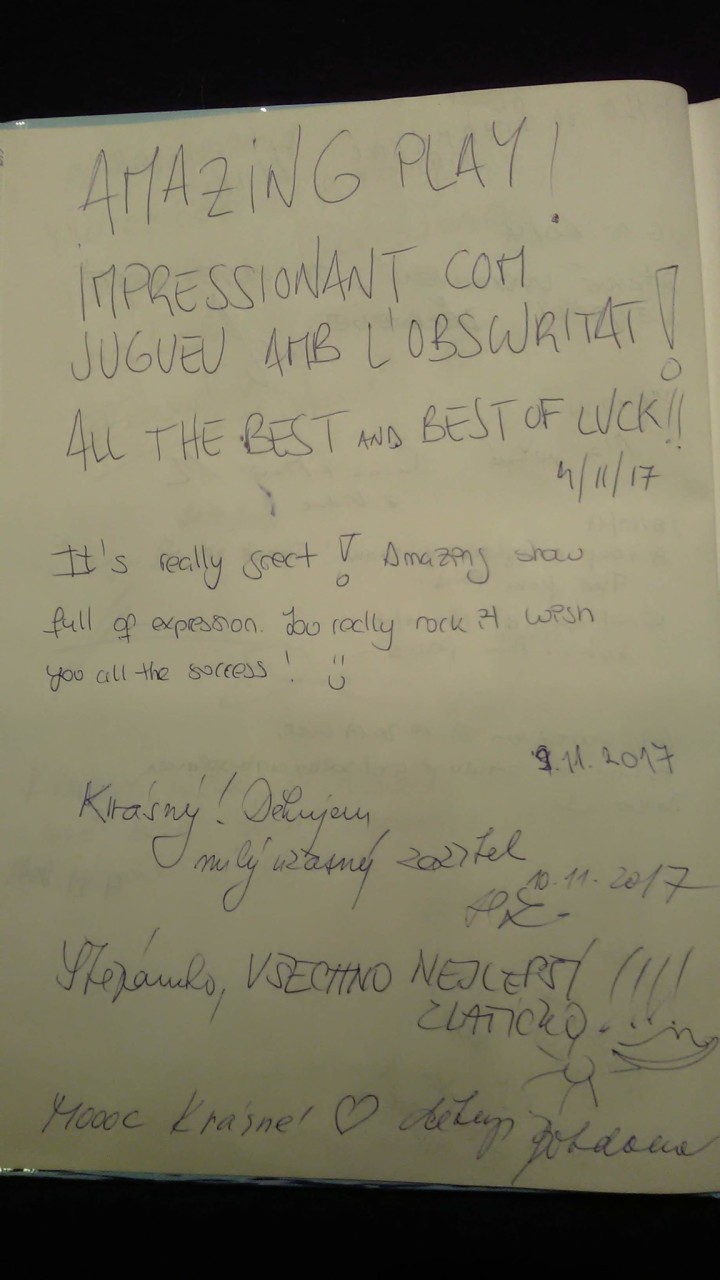 AMAZING PLAY!
IMPRESSIONANT COM
JUGUEU AMB L'OBSCURITAT!
ALL THE BEST AND BEST OF LUCK!!
4/11/17
It's really great! Amazing show
full of expression. You really rock it wish
you all the success! ü
9.11.2017
Krásný! Děkujem
milý úžasný zážitek
10.11.2017
Štěpánko, VŠECHNO NEJLEPŠÍ !!!!
ZLATÍČKO.
Moooc Krásné! ♡ děkuji